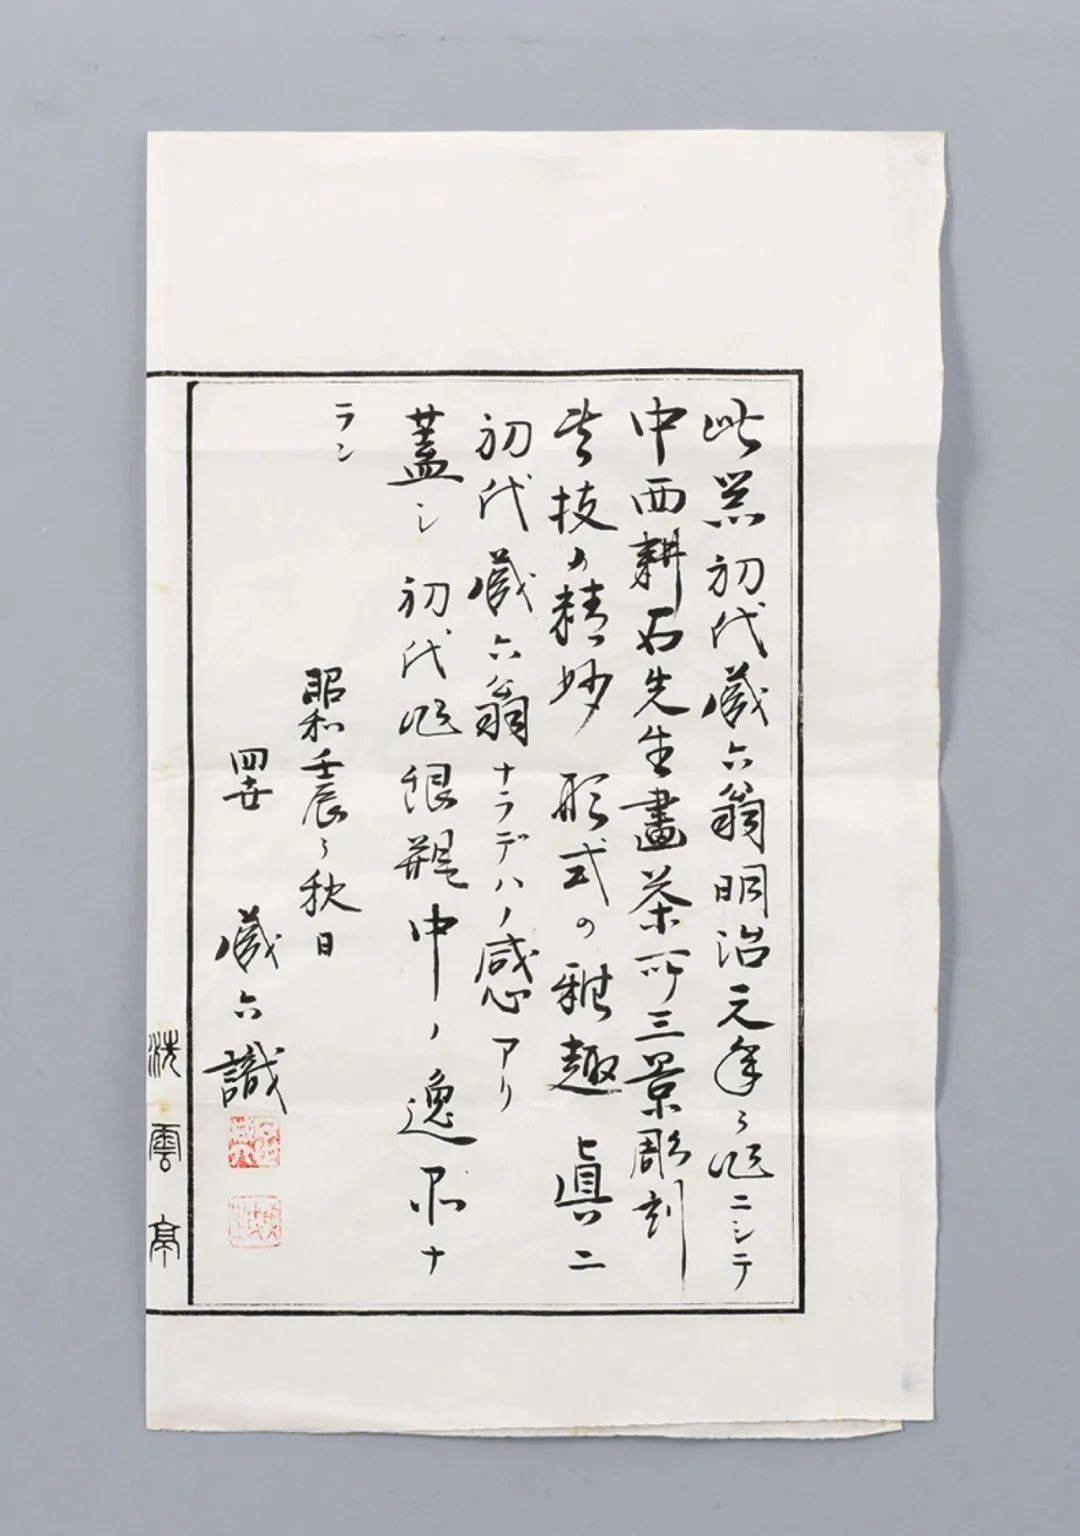 此器初代蔵六翁明治元年之作ニシテ
中西耕石先生畫茶所三景彫刻
其技の精妙形式の雅趣眞ニ
初代蔵六翁ナラデハノ感アリ
蓋シ初代作銀瓶中ノ逸品ナ
ラン
昭和壬辰之秋日
四世 蔵六識
雲亭